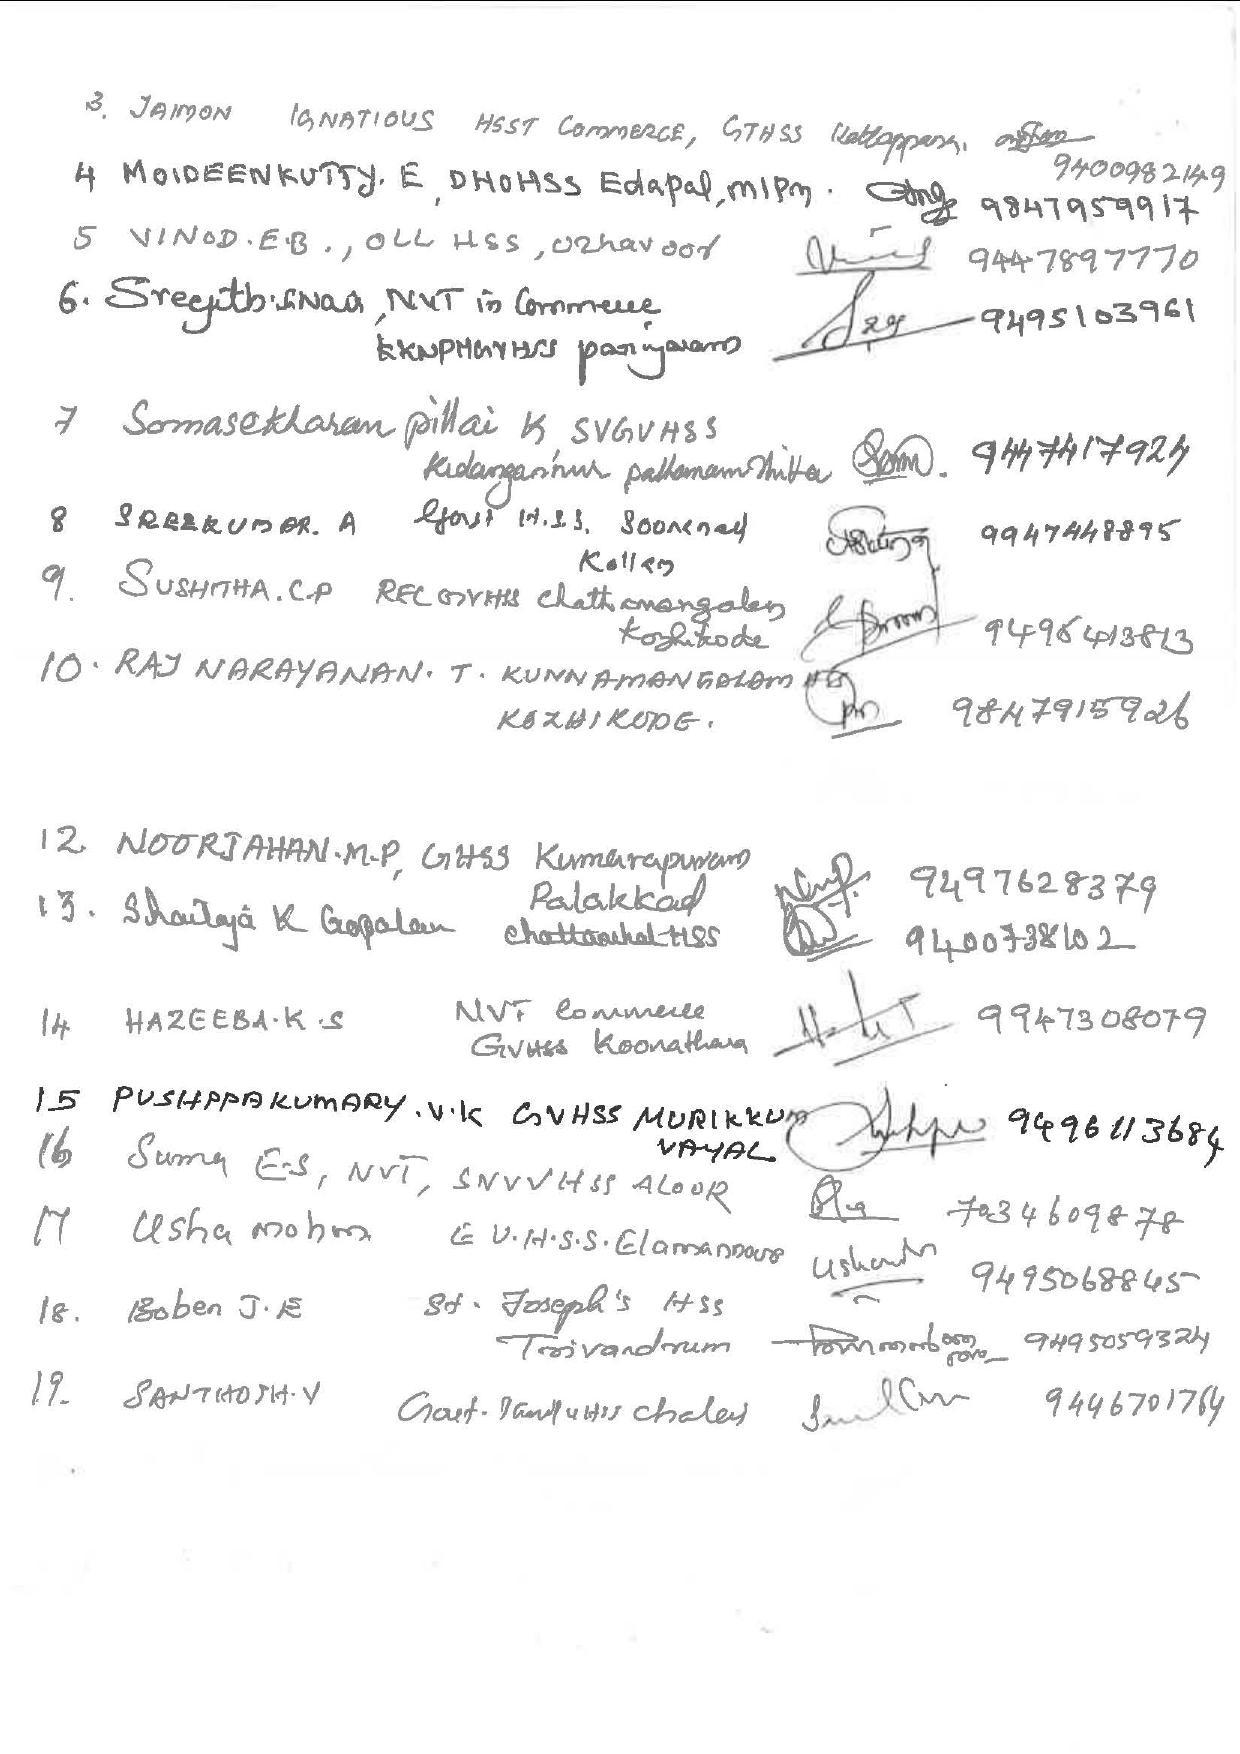 3. JAIMON IGNATIOUS HSST COMMERCE, GTHSS Kattappana. 9400982149
4 MOIDEENKUTTY. E, DHOHSS Edapal, MLPM. 9847959917
5 VINOD.E.B., OLL HSS, Uzhavoor 9447897770
6. Sreejith NVT in Commerce 9495103961
KKNPMGVHSS pariyaram
7 Somasekharan pillai K SVGVHSS
Kidangannur pathanamthitta 9447417924
8 SREEKUMAR. A Govt H.S.S. Sooranad 9947448895
Kollam
9. SUSHITHA.C.P RECGVHSS Chathamangalam
Kozhikode 9496413813
10. RAJ NARAYANAN. T. KUNNAMANGALAM HSS
KOZHIKODE. 9847915926
12. NOORJAHAN.M.P, GHSS Kumarapuram 9497628379
Palakkad
13. Shailaja K Gopalan Chattanchal HSS 9400738102
14 HAZEEBA.K.S NVT Commerce 9947308079
GVHSS Koonathara
15 PUSHPPAKUMARY.V.K GVHSS MURIKKUM 9496113684
VAYAL
16 Suma E.S, NVT, SNVVHSS ALOOR 7034609878
17 Usha mohan G V.H.S.S. Elamannoor ushamohan 9495068845
18. Boben J.E St. Joseph's HSS
Trivandrum 9495059324
19. SANTHOSH.V Govt. HSS Chaley 9446701764